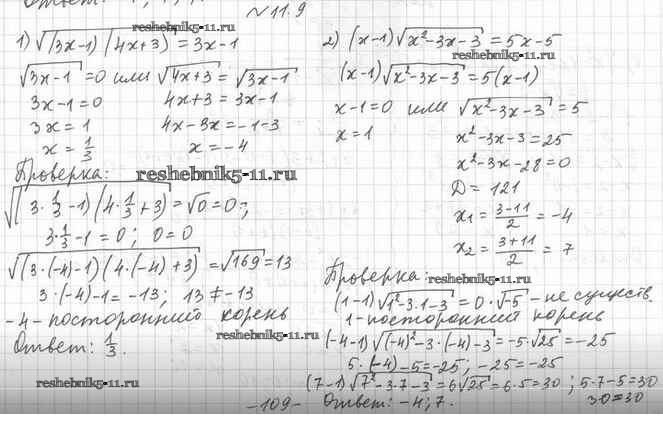 №11.9
1) √((3x-1)(4x+3)) = 3x-1
√(3x-1) = 0 или √(4x+3) = √(3x-1)
3x-1=0 4x+3 = 3x-1
3x = 1 4x-3x = -1-3
x = 1/3 x = -4
Проверка:
√((3·1/3-1)(4·1/3+3)) = √0 = 0;
3·1/3-1 = 0; 0=0
√((3·(-4)-1)(4·(-4)+3)) = √169 = 13
3·(-4)-1 = -13; 13 ≠ -13
-4 - посторонний корень
Ответ: 1/3.
2) (x-1)√(x²-3x-3) = 5x-5
(x-1)√(x²-3x-3) = 5(x-1)
x-1=0 или √(x²-3x-3) = 5
x=1 x²-3x-3=25
x²-3x-28=0
D = 121
x₁ = (3-11)/2 = -4
x₂ = (3+11)/2 = 7
Проверка:
(1-1)√(1²-3·1-3) = 0·√-5 - не существ.
1 - посторонний корень
(-4-1)√((-4)²-3·(-4)-3) = -5·√25 = -25
5·(-4)-5=-25; -25=-25
(7-1)√(7²-3·7-3) = 6√25 = 6·5=30; 5·7-5=30
30=30
Ответ: -4; 7.
-109-
reshebnik5-11.ru
reshebnik5-11.ru
reshebnik5-11.ru
reshebnik5-11.ru
reshebnik5-11.ru
reshebnik5-11.ru